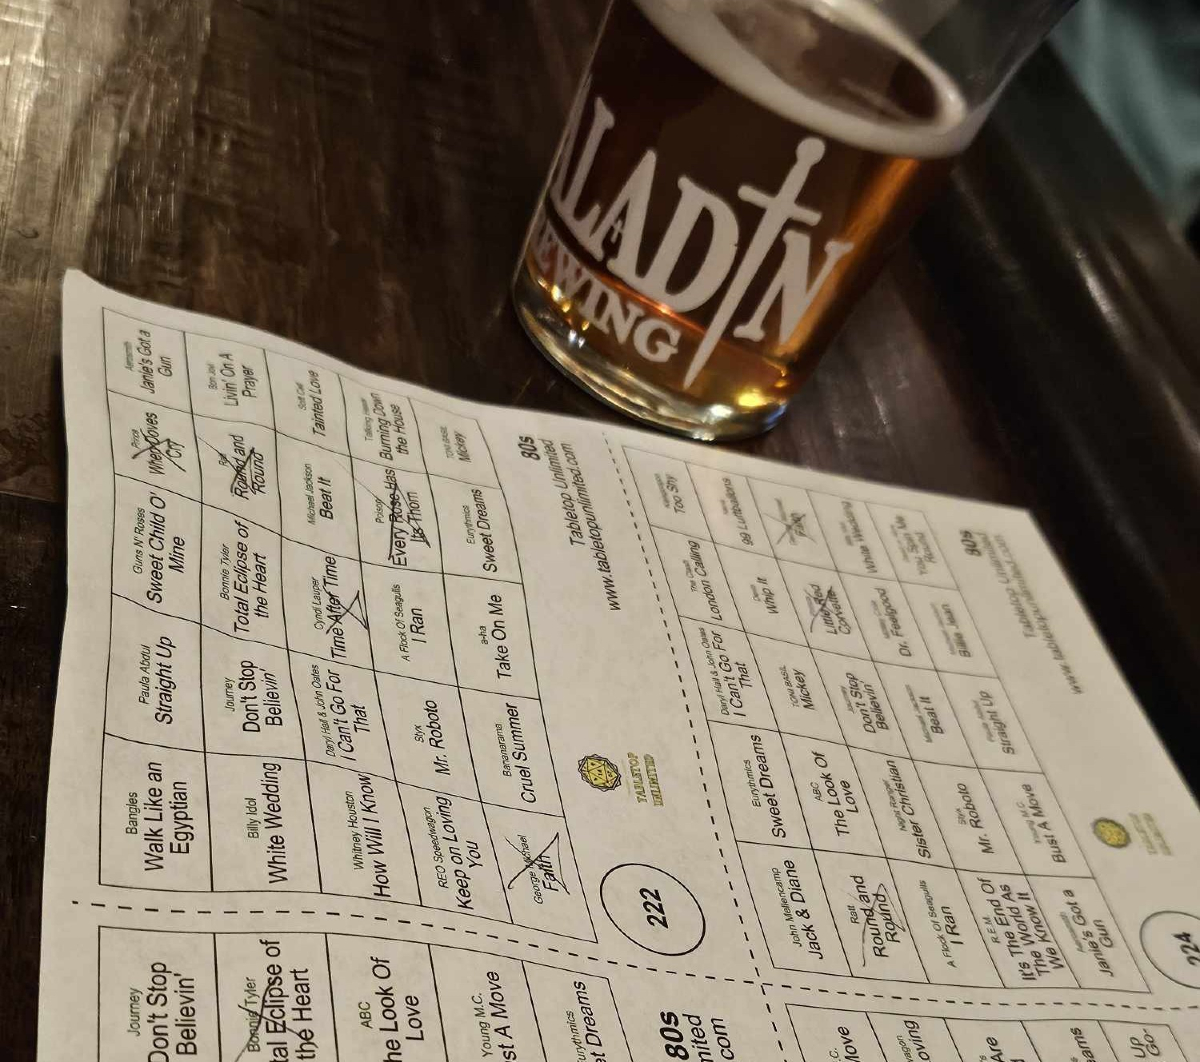 ALADIN
EWING
Aerosmith
Janie's Got a
Gun
Prince
When Doves
Cry
Guns N' Roses
Sweet Child O'
Mine
Paula Abdul
Straight Up
Bangles
Walk Like an
Egyptian
Bon Jovi
Livin' On A
Prayer
Ratt
Round and
Round
Bonnie Tyler
Total Eclipse of
the Heart
Journey
Don't Stop
Believin'
Billy Idol
White Wedding
Soft Cell
Tainted Love
Michael Jackson
Beat It
Cyndi Lauper
Time After Time
Daryl Hall & John Oates
I Can't Go For
That
Whitney Houston
How Will I Know
Talking Heads
Burning Down
the House
Poison
Every Rose Has
Its Thorn
A Flock Of Seagulls
I Ran
Styx
Mr. Roboto
REO Speedwagon
Keep on Loving
You
Toni Basil
Mickey
Eurythmics
Sweet Dreams
a-ha
Take On Me
Bananarama
Cruel Summer
George Michael
Faith
80s
Tabletop Unlimited
www.tabletopunlimited.com
TABLETOP
UNLIMITED
222
Too Shy
The Clash
London Calling
Daryl Hall & John Oates
I Can't Go For
That
Eurythmics
Sweet Dreams
John Mellencamp
Jack & Diane
99 Luftballons
Devo
Whip It
Toni Basil
Mickey
ABC
The Look Of
Love
Ratt
Round and
Round
Faith
Little Red
Corvette
Journey
Don't Stop
Believin'
Night Ranger
Sister Christian
A Flock Of Seagulls
I Ran
White Wedding
Dr. Feelgood
Michael Jackson
Beat It
Styx
Mr. Roboto
R.E.M.
It's The End Of
The World As
We Know It
You Spin Me
Round
Billie Jean
Paula Abdul
Straight Up
Young M.C.
Bust A Move
Aerosmith
Janie's Got a
Gun
80s
Tabletop Unlimited
www.tabletopunlimited.com
224
Journey
Don't Stop
Believin'
Bonnie Tyler
tal Eclipse of
the Heart
ABC
he Look Of
Love
Young M.C.
st A Move
Eurythmics
t Dreams
80s
nited
com
C.
Move
agon
oving
Are
ams